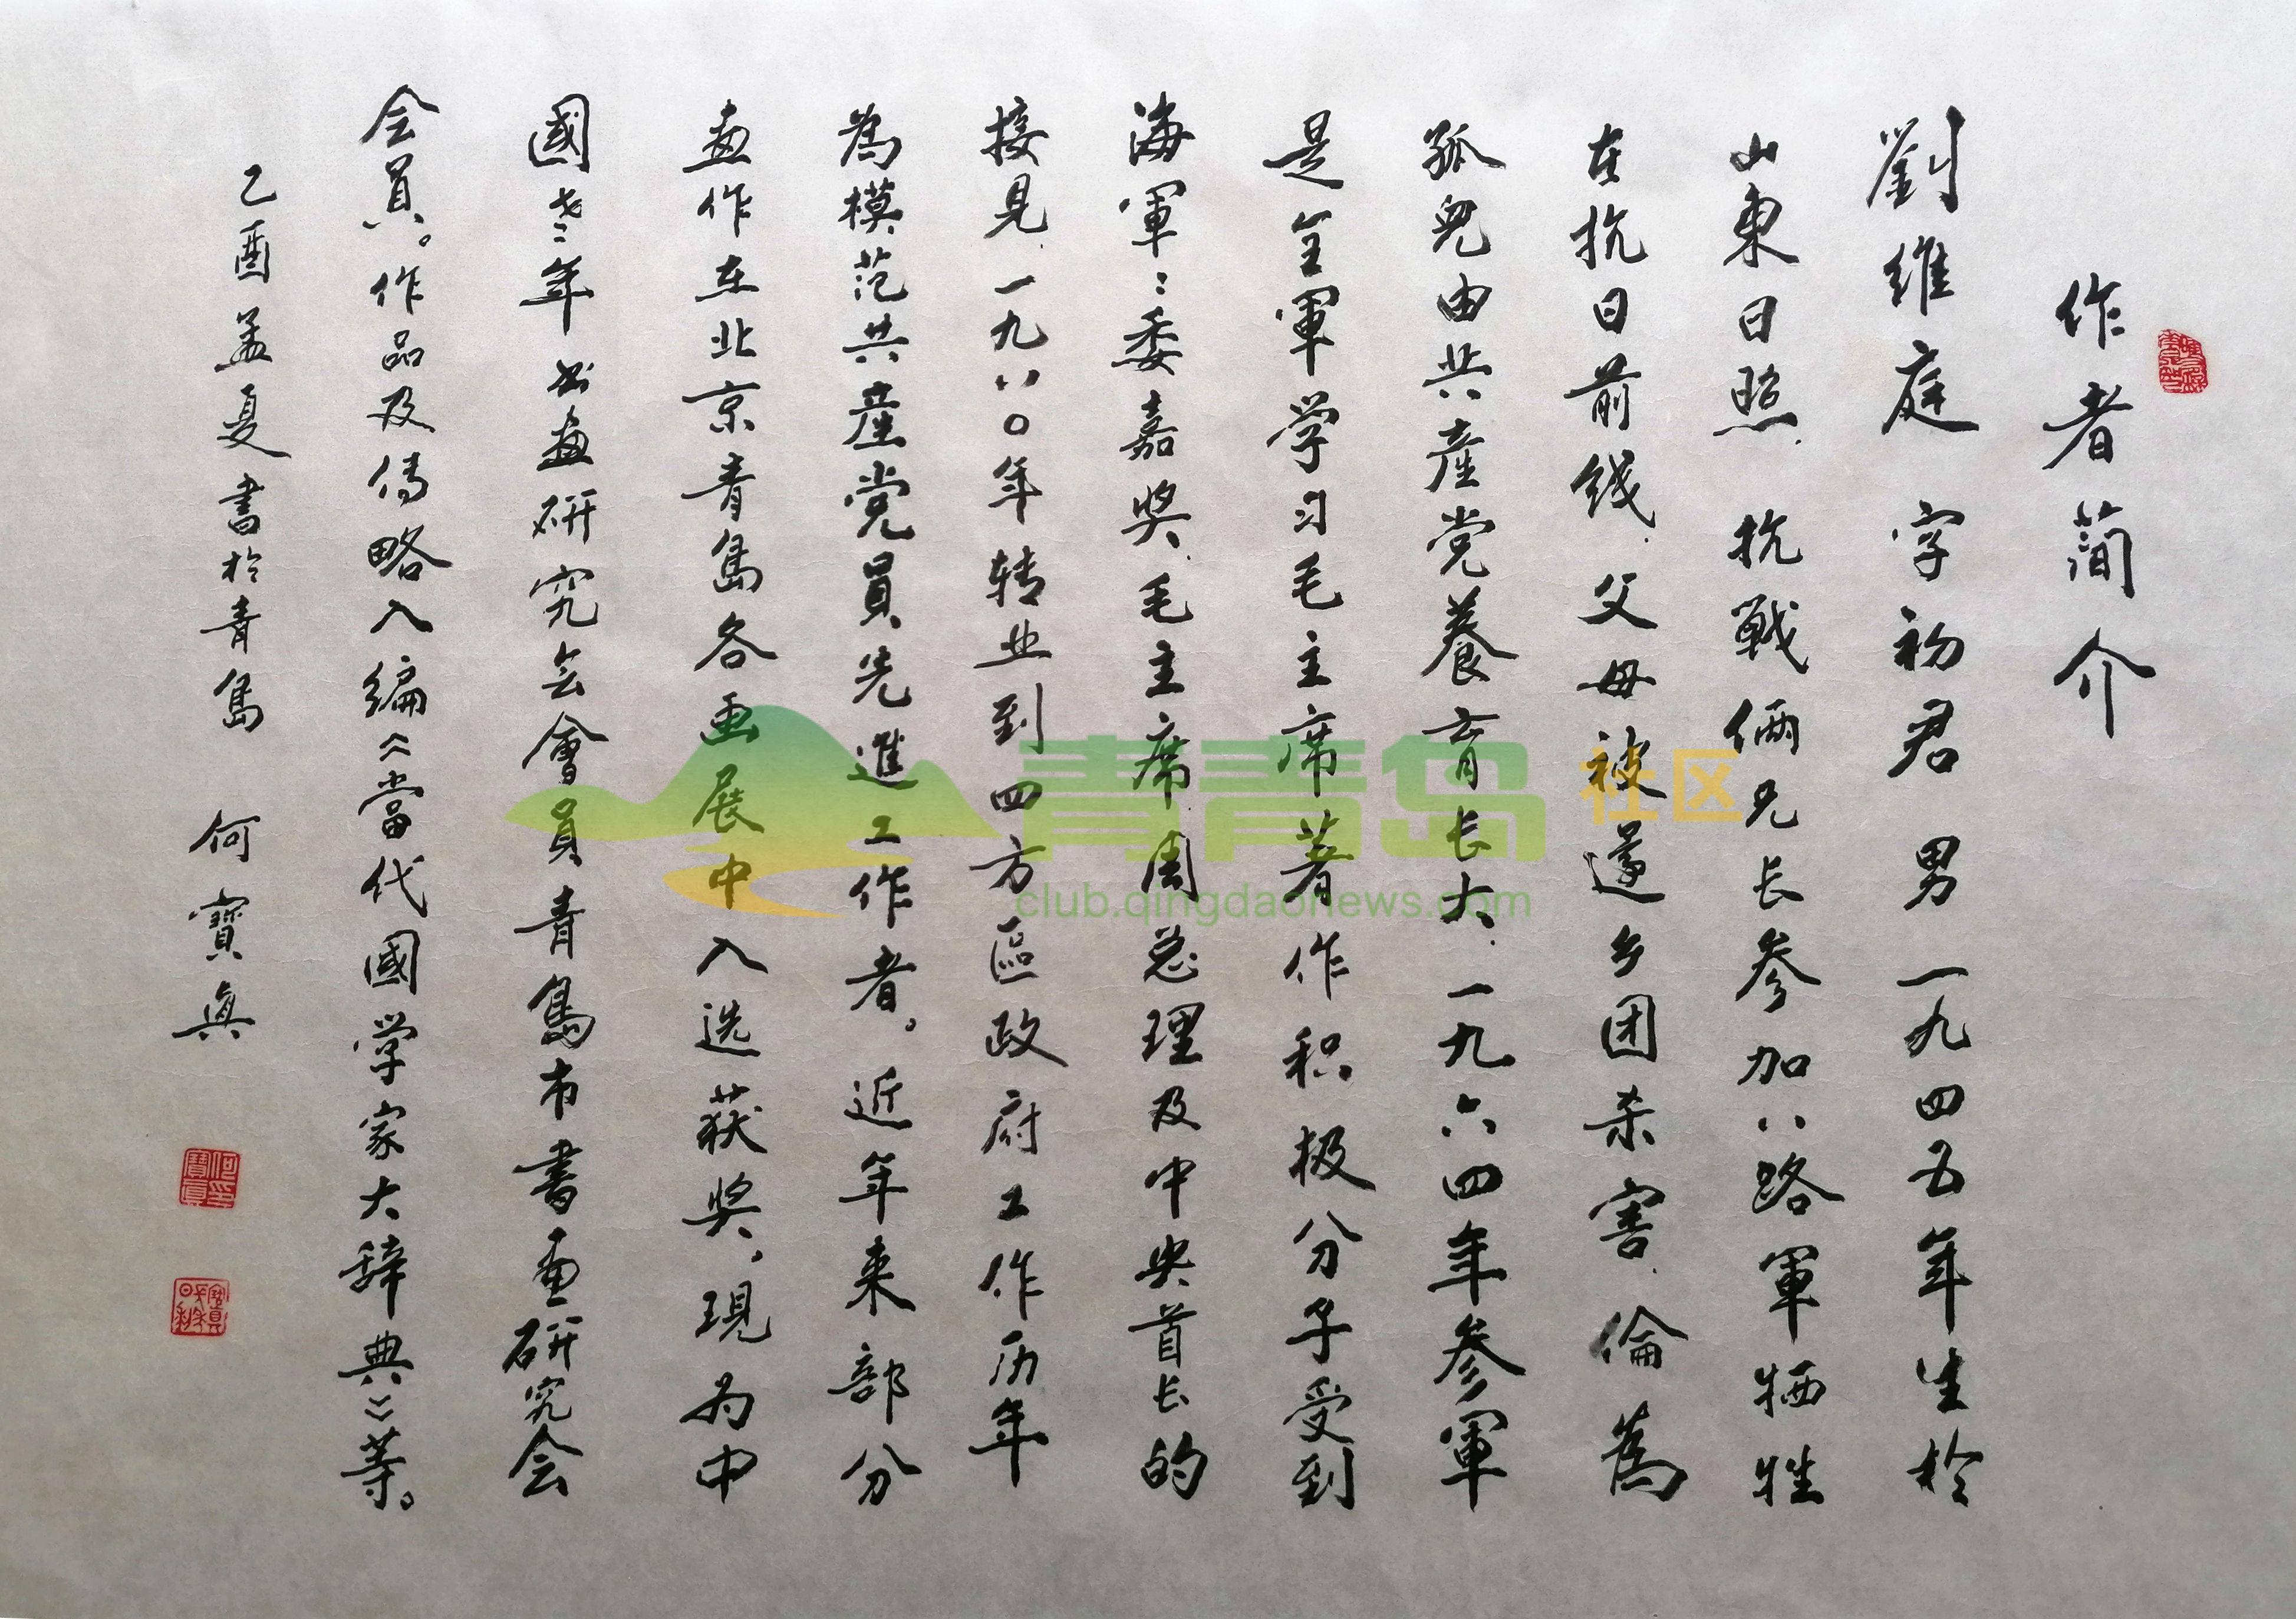 作者简介
劉維庭 字初君 男 一九四五年生於
山東日照.抗戦俩兄长参加八路軍牺牲
在抗日前线.父母被還乡团杀害.倫為
孤兒由共產党養育长大.一九六四年参軍
是全軍学习毛主席著作积极分子受到
海軍:委嘉奖.毛主席周总理及中央首长的
接見.一九八〇年转业到四方區政府工作历年
為模范共產党員先進工作者。近年来部分
畫作在北京青島各画展中入选获奖,現为中
國老年书畫研究会會員青島市書画研究会
会員。作品及传略入编《當代國学家大辞典》等。
乙酉孟夏書於青島 何寶真
何寶真印
青青岛社区
club.qingdaonews.com